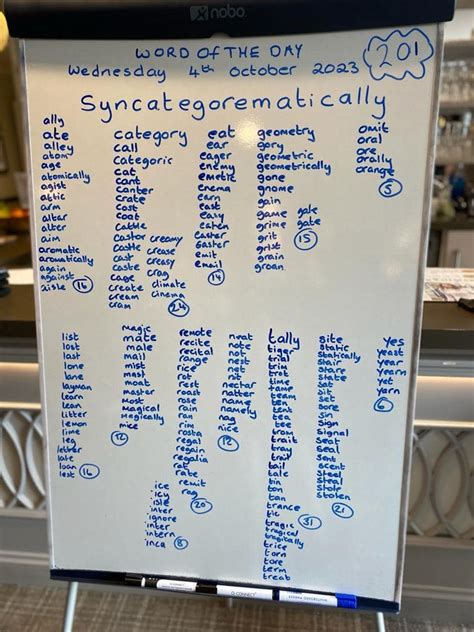 nobo
WORD OF THE DAY
Wednesday 4th October 2023
201
Syncategorematically
ally
ate
alley
atom
age
atomically
agist
attic
arm
altar
alter
aim
aromatic
aromatically
again
against
aisle 16
category
call
categoric
cat
cant
canter
crate
cost
coat
cattle
castor creamy
castle crease
cast creasy
caste crag
cage climate
create cinema
cream
cram 24
eat
ear
eager
enemy
emetic
enema
earn
east
easy
eaten
easter
easter
emit
email 14
geometry
gory
geometric
geometrically
gore
gnome
gain
game gale
grime gate
grit 15
grist
grain
groan
omit
oral
ore
orally
orange
5
list
lost
last
lone
lane
layman
learn
lean
litter
lemon
lime
leg
letter
late
loan
lest 16
magic
mate
male
mail
mist
mast
moat
master
most
magical
magically
mice
12
remote
recite
recital
range
rice
rat
rest
roast
rose
rain
ran
rim
rosta
regal
regain
regalia
rat
rate
remit
rag
20
neat
note
not
nest
net
nit
nectar
natter
name
namely
nag
nice
12
tally
tiger
trial
trim
trot
time
tame
ten
tent
tea
tee
trom
trait
tray
trail
tail
tale
tin
ton
tan
trance
tic
tragic 31
tragical
tragically
trice
torn
tore
term
treat
site
static
statically
stair
stare
state
sat
sit
set
sore
sin
sign
signal
seal
seat
scent
steel
steal
stole
stolen
21
yes
yeast
year
yearn
yet
yarn
6
ice
icy
isle
inter
ignore
inter
intern
inca 8